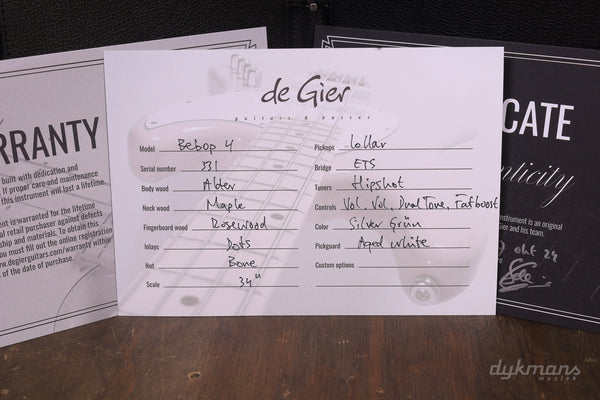 de Gier
guitars & basses
Model Bebop 4
Serial number 531
Body wood Alder
Neck wood Maple
Fingerboard wood Rosewood
Inlays Dots
Nut Bone
Scale 34"
Pickups Lollar
Bridge ETS
Tuners Hipshot
Controls Vol, Vol, Dual Tone, Fatboost
Color Silver Grün
Pickguard Aged white
Custom options
RRANTY
built with dedication and
If proper care and maintenance
this instrument will last a lifetime.
ent is warranted for the lifetime
retail purchaser against defects
ship and materials. To obtain this
you must fill out the online registration
.degierguitars.com/warranty within
of the date of purchase.
CATE
nticity
instrument is an original
Gier and his team.
okt 24
dykmans
muziek